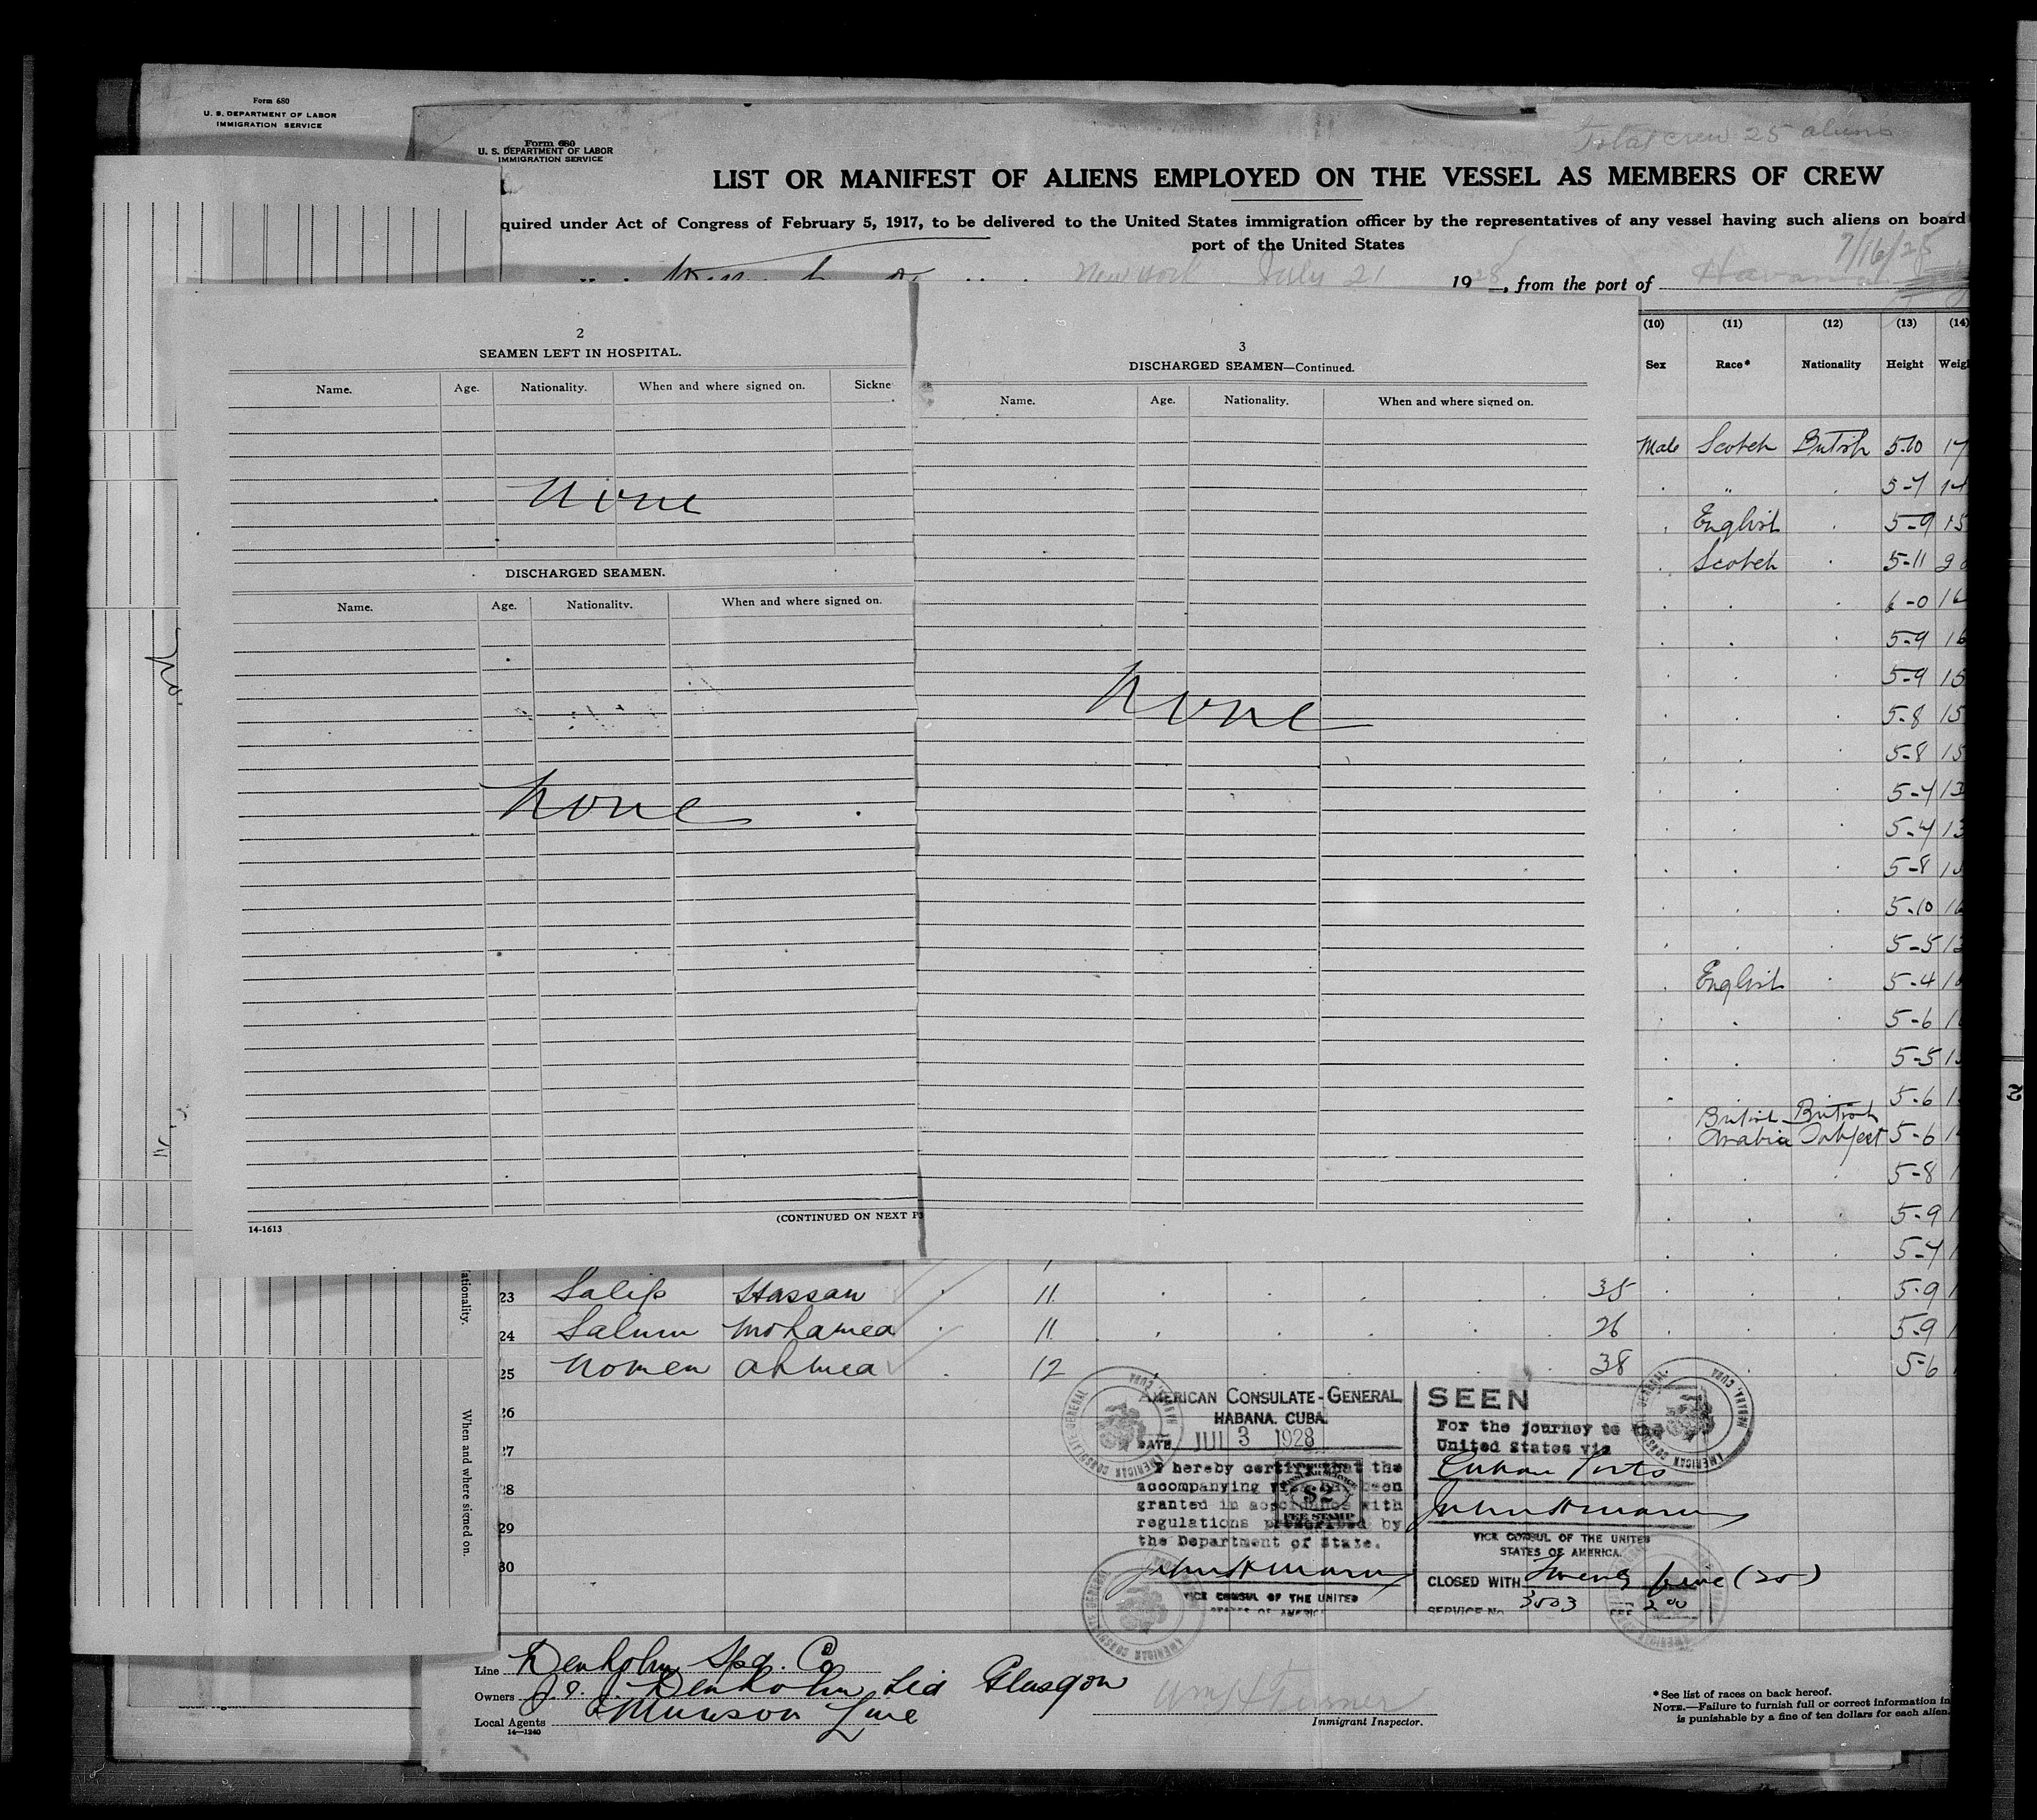 Form 680
U. S. DEPARTMENT OF LABOR
IMMIGRATION SERVICE
Form 680
U. S. DEPARTMENT OF LABOR
IMMIGRATION SERVICE
Total crew 25 aliens
LIST OR MANIFEST OF ALIENS EMPLOYED ON THE VESSEL AS MEMBERS OF CREW
quired under Act of Congress of February 5, 1917, to be delivered to the United States immigration officer by the representatives of any vessel having such aliens on board
port of the United States
7/16/28
New York July 21 1928, from the port of Havana
2
SEAMEN LEFT IN HOSPITAL.
Name. Age. Nationality. When and where signed on. Sickne
None
DISCHARGED SEAMEN.
Name. Age. Nationality. When and where signed on.
None
(CONTINUED ON NEXT P
14-1613
3
DISCHARGED SEAMEN—Continued.
Name. Age. Nationality. When and where signed on.
None
(10) (11) (12) (13) (14)
Sex Race* Nationality Height Weig
Male Scotch British 5-10 17
" 5-7 14
English 5-9 15
Scotch 5-11
6-0 16
5-9 16
5-9 15
5-8 15
5-8 15
5-7 13
5-4 13
5-8
5-10
5-5
English 5-4
5-6
5-5
5-6
British British
Arabia Subject 5-6
5-8
5-9
5-7
23 Hassan 11 35 5-9
24 Salum Mohamed 11 26 5-9
25 Nomen Ahmed 12 38 5-6
26
27
28
29
30
ationality.
When and where signed on.
AMERICAN CONSULATE-GENERAL
HABANA, CUBA.
DATE 3 1928
I hereby certify that the
accompanying visa has been
granted in accordance with
regulations prescribed by
the Department of State.
$2
FEE STAMP
VICE CONSUL OF THE UNITED
STATES OF AMERICA
SEEN
For the journey to the
United States via
Cuban Ports
VICE CONSUL OF THE UNITED
STATES OF AMERICA.
CLOSED WITH Twenty five (25)
SERVICE No. 3503 FEE 2.00
AMERICAN CONSULATE GENERAL HABANA, CUBA
Line Denholm Spg. Co
Owners J. & J. Denholm Ltd Glasgow
Local Agents Munson Line
14—1240
Wm H Turner
Immigrant Inspector.
*See list of races on back hereof.
NOTE.—Failure to furnish full or correct information in
is punishable by a fine of ten dollars for each alien.